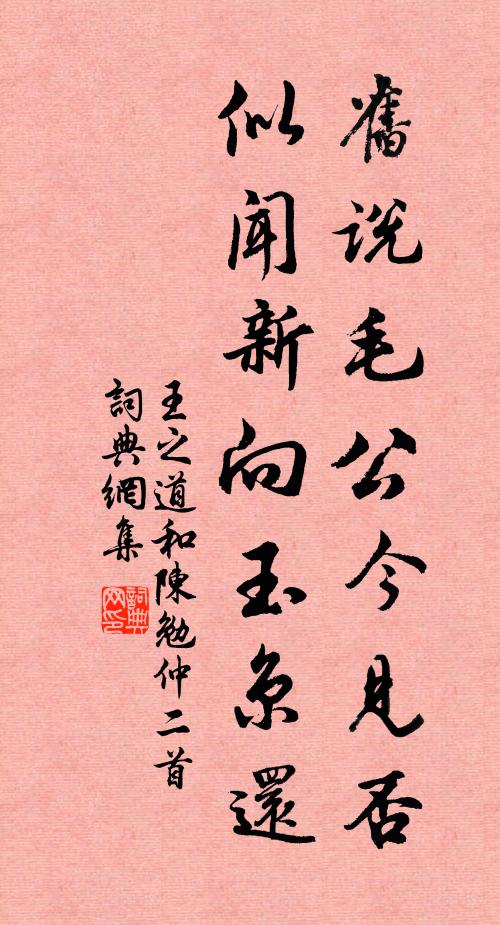 舊說毛公今見否
似聞新向玉京還
王之道和陳勉仲二首
詞典網集
詞典網印